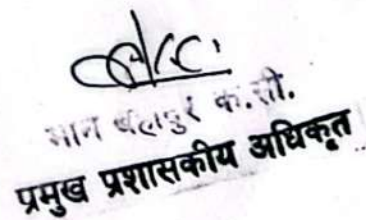 मान बहादुर के.सी.
प्रमुख प्रशासकीय अधिकृत